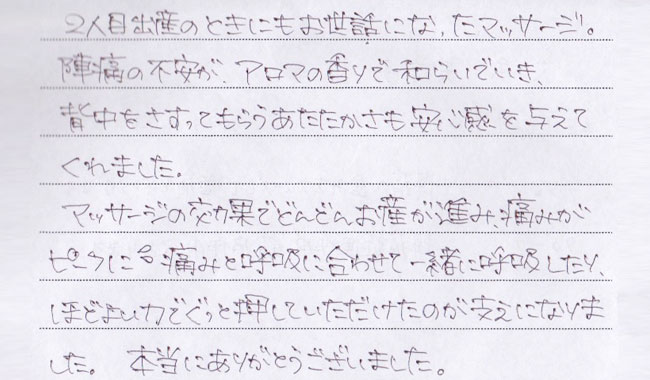 2人目出産のときにもお世話になったマッサージ。
陣痛の不安が、アロマの香りで和らいでいき、
背中をさすってもらうあたたかさも安心感を与えて
くれました。
マッサージの効果でどんどんお産が進み、痛みが
ピークに 痛みと呼吸に合わせて一緒に呼吸したり、
ほどよい力でぐっと押していただけたのが支えになりま
した。 本当にありがとうございました。